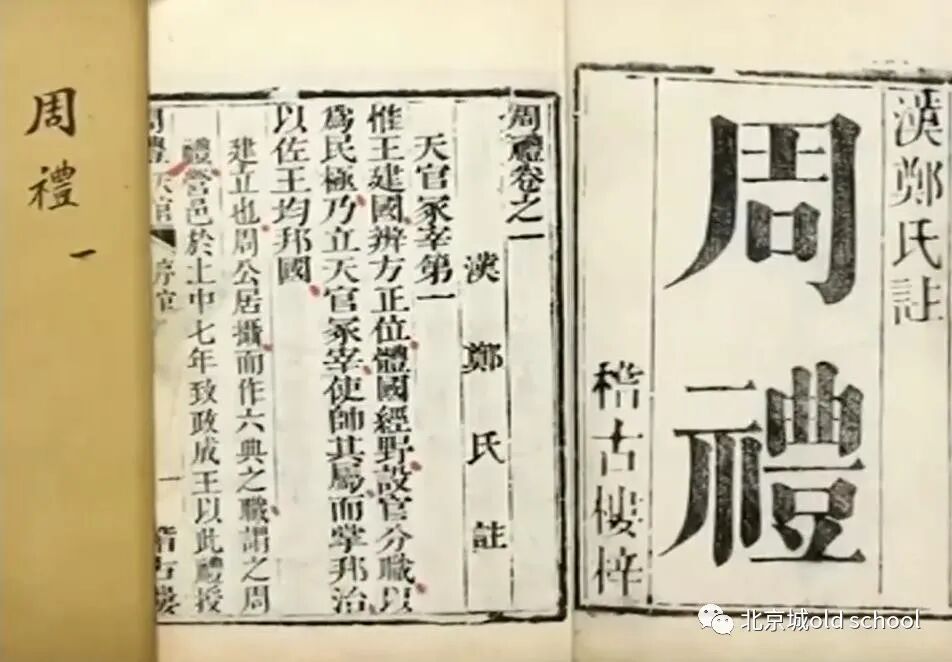 漢鄭氏註
周禮
稽古樓梓
周禮卷之一
漢鄭氏註
天官冢宰第一
惟王建國辨方正位體國經野設官分職以
爲民極乃立天官冢宰使帥其屬而掌邦治
以佐王均邦國
建立也周公居攝而作六典之職謂之周
禮營邑於土中七年致政成王以此禮授
周禮天官 序官 一 稽古樓
周禮 一
北京城old school